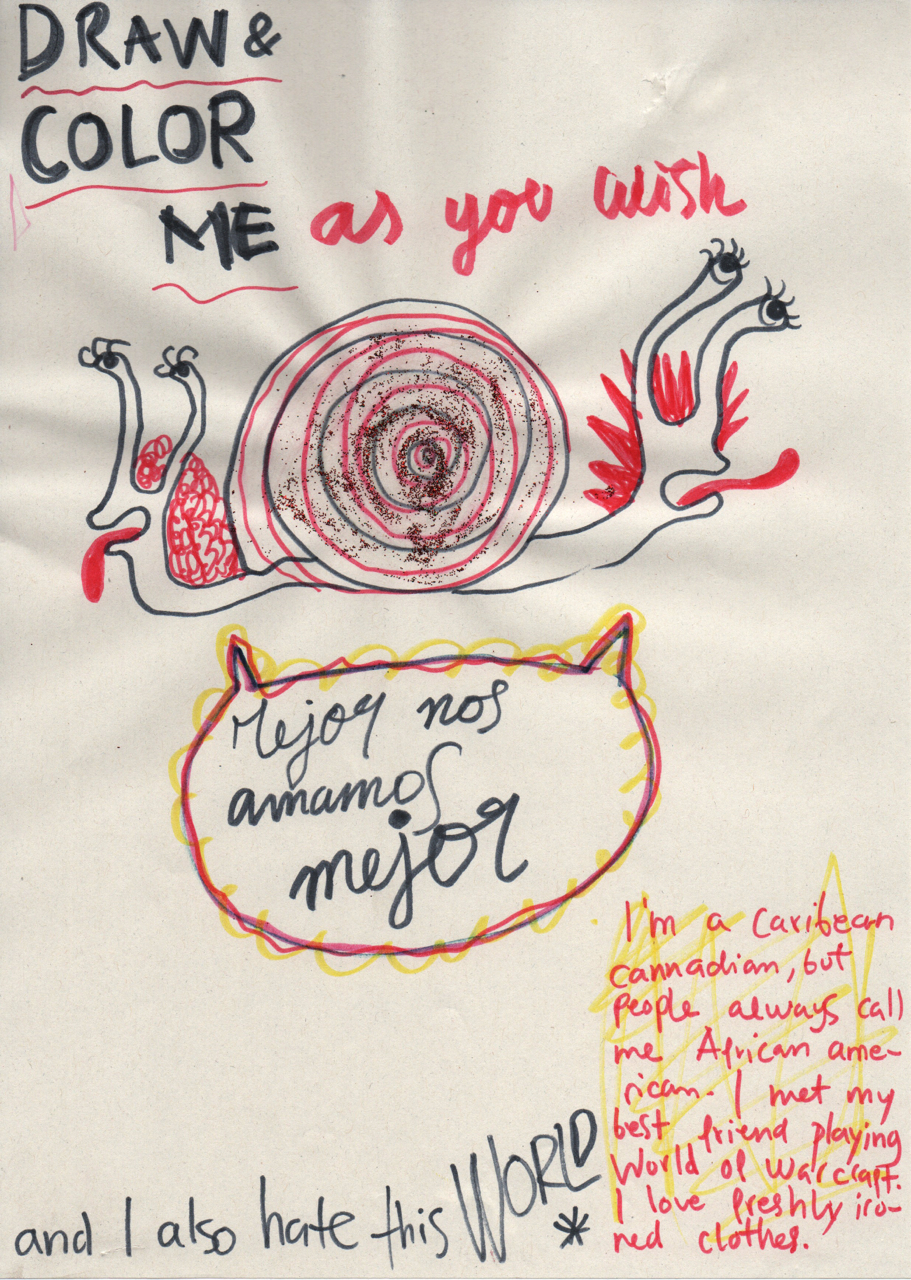 DRAW &
COLOR
ME as you wish
Mejor nos
amamos
mejor
I'm a Caribean
cannadian, but
people always call
me African ame-
rican. I met my
best friend playing
World of warcraft.
I love freshly iro-
ned clothes.
and I also hate this WORLD *